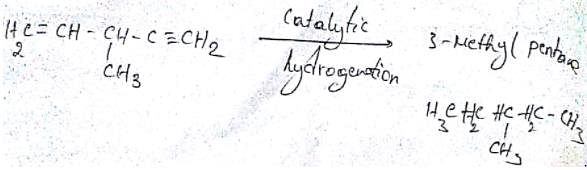 H2C = CH - CH - C ≡ CH2
CH3
Catalytic
hydrogenation
3-Methyl pentane
H3C H2C HC - H2C - CH3
CH3